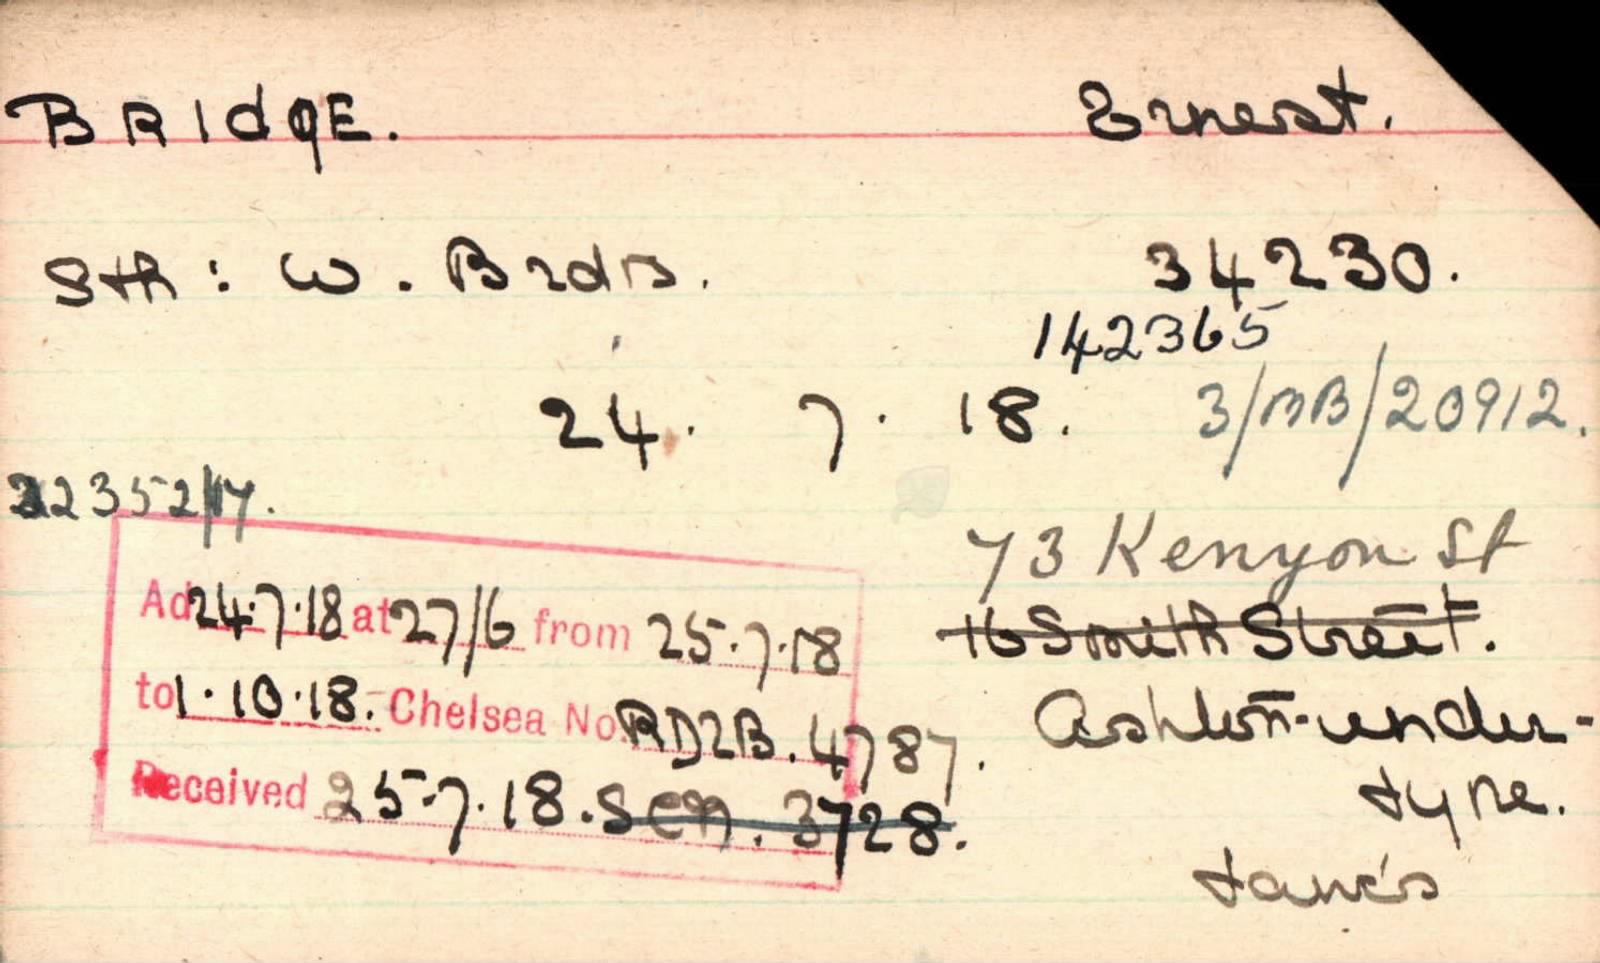 BRIDGE. Ernest.
Sth: W. Brdrs. 34230.
142365
24. 7. 18. 3/MB/20912.
22352/17.
73 Kenyon St
Ad 24.7.18 at 27/6 from 25.7.18
16 Smith Street.
to 1.10.18. Chelsea No. RD2B. 4787.
Ashton-under-
Received 25.7.18. Sen. 3728.
Lyne.
Lancs